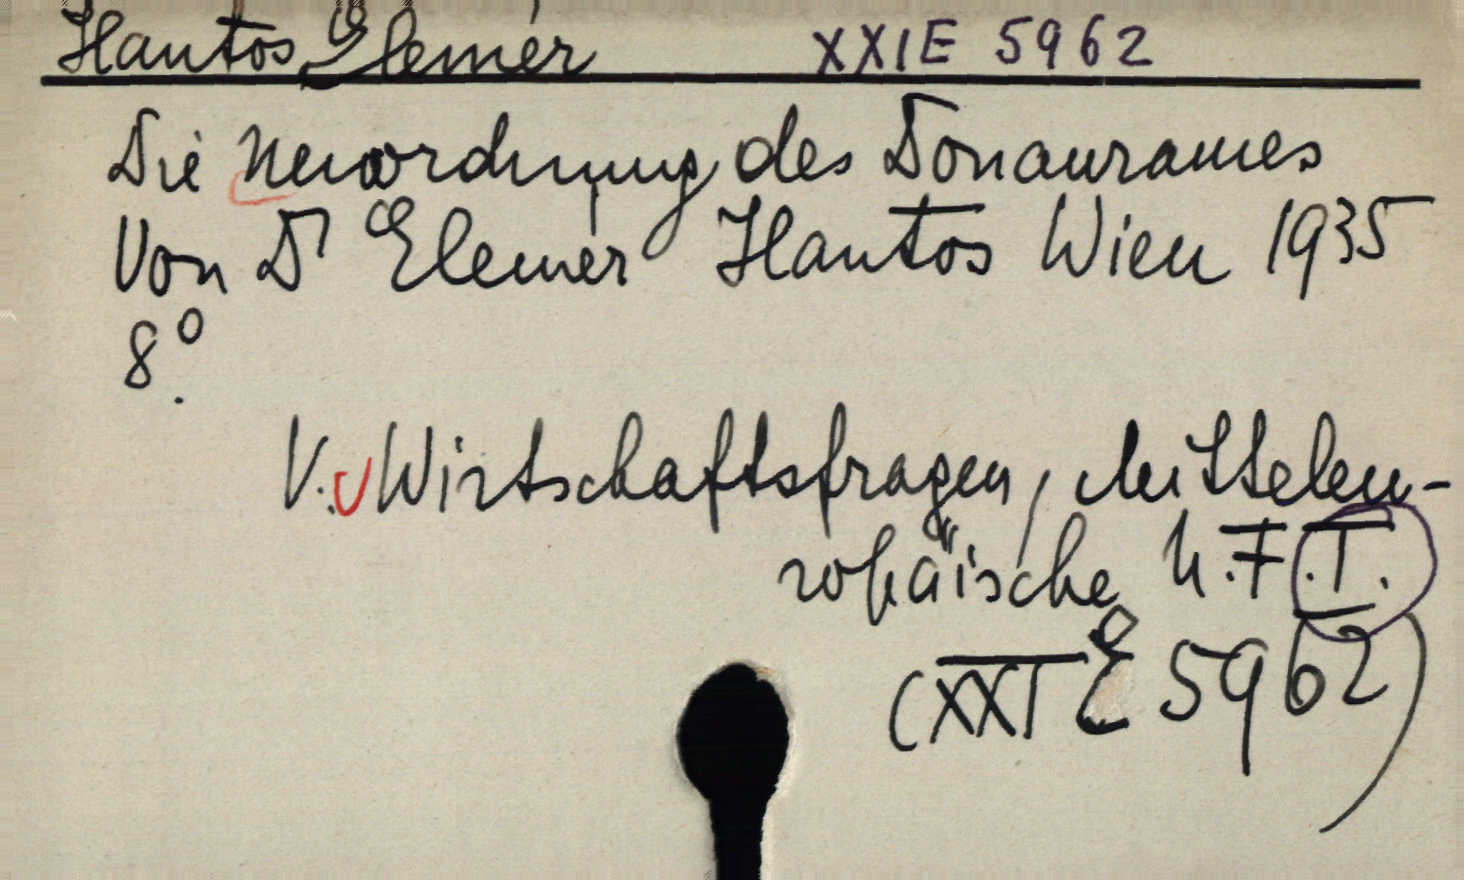 Hantos Elemér XXIE 5962
Die Neuordnung des Donauraumes
Von Dr Elemér Hantos Wien 1935
8°.
V. Wirtschaftsfragen, Mitteleu-
ropäische N.F.I.
(XXI E 5962)